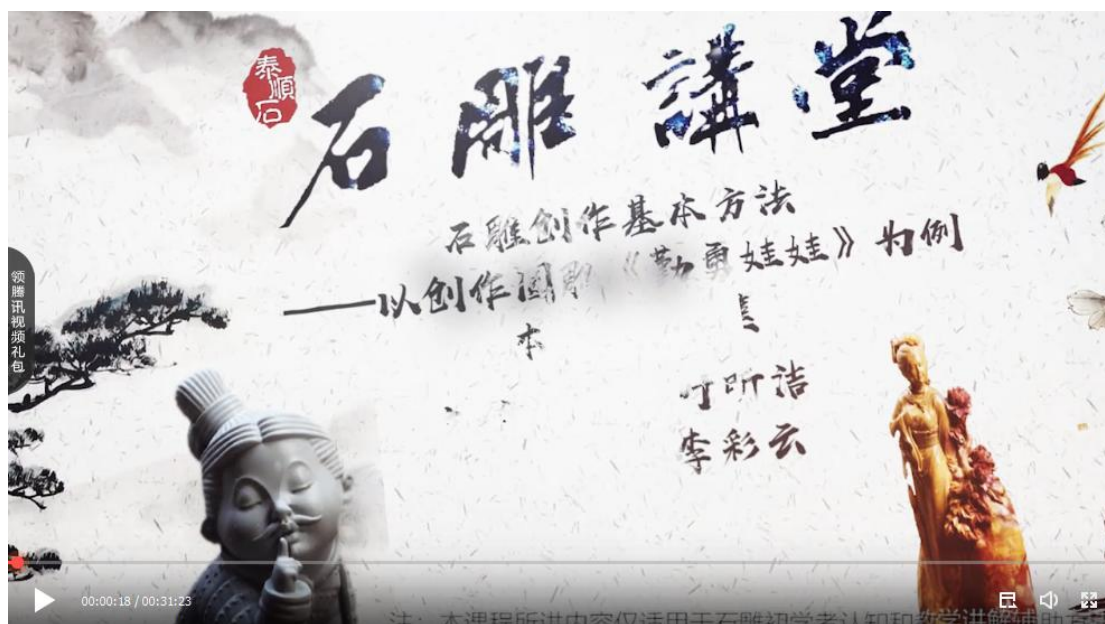 泰順石
石雕講堂
石雕创作基本方法
——以创作圆雕《勤勇娃娃》为例
本
丁昕洁
李彩云
领腾讯视频礼包
00:00:18 / 00:31:23
注：本课程所讲内容仅适用于石雕初学者认知和教学讲解辅助